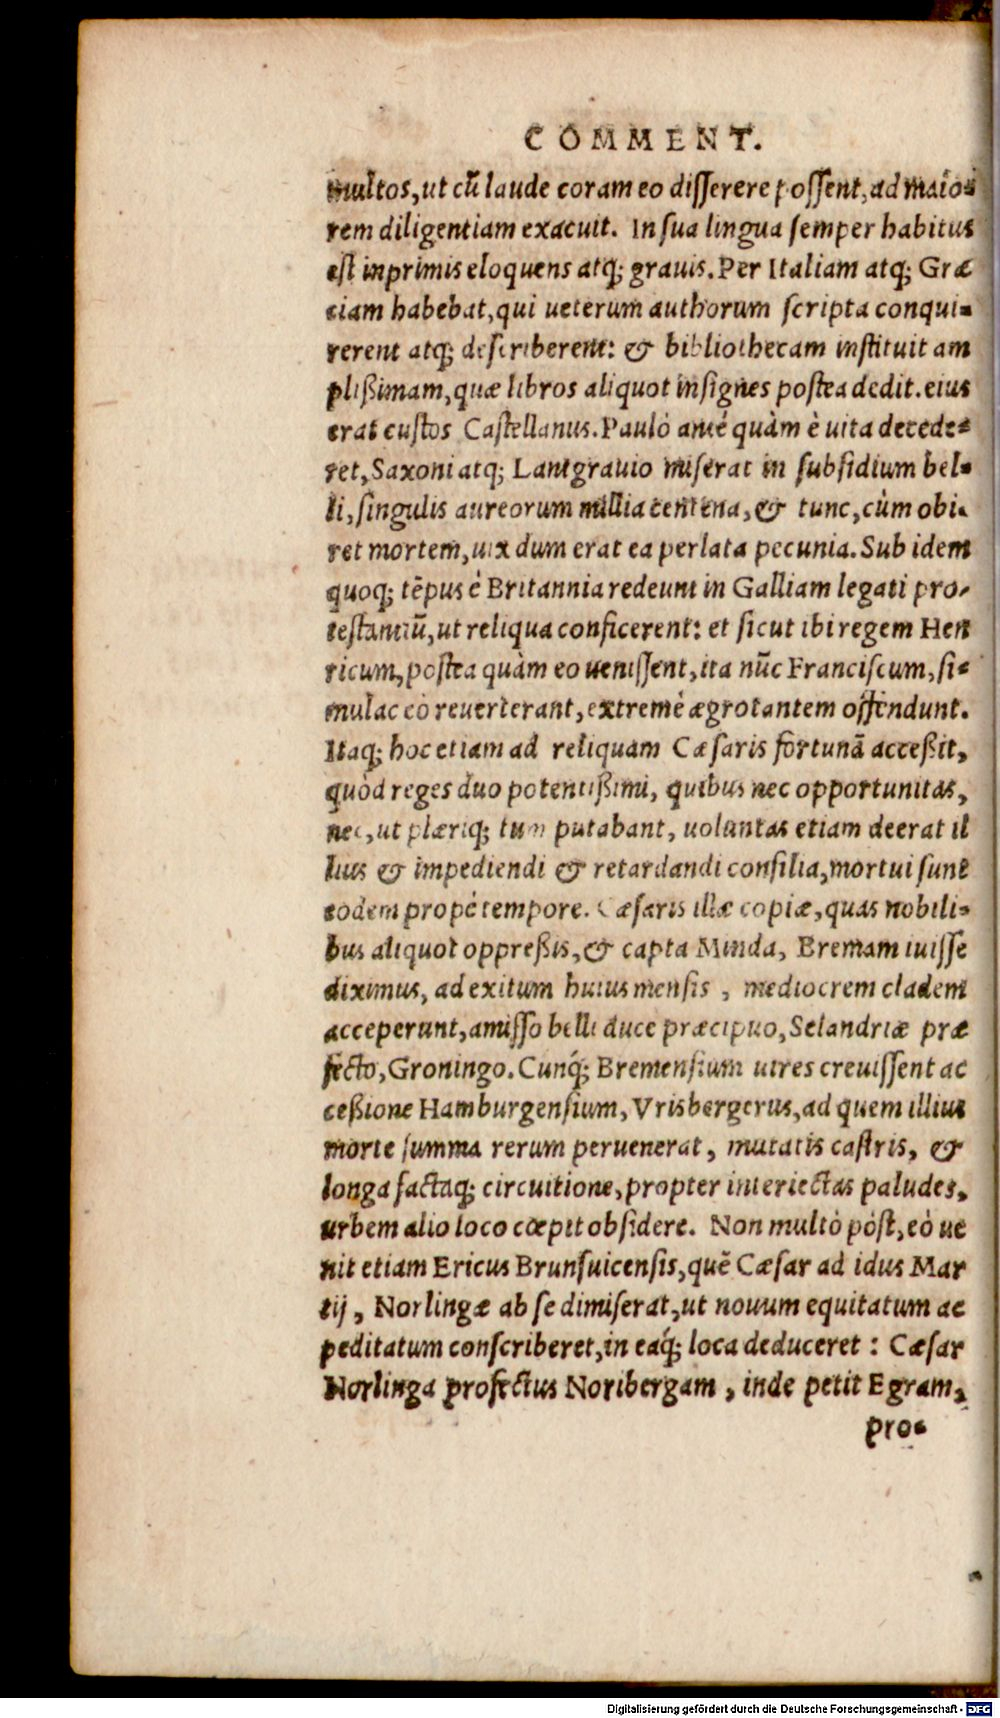 COMMENT.
multos, ut cū laude coram eo disserere possent, ad maio-
rem diligentiam exacuit. In sua lingua semper habitus
est inprimis eloquens atq; grauis. Per Italiam atq; Græ
ciam habebat, qui ueterum authorum scripta conqui-
rerent atq; describerent: & bibliothecam instituit am
plißimam, quæ libros aliquot insignes postea dedit. eius
erat custos Castellanus. Paulò antè quàm è uita decede-
ret, Saxoni atq; Lantgrauio miserat in subsidium bel-
li, singulis aureorum millia centena, & tunc, cùm obi-
ret mortem, uix dum erat ea perlata pecunia. Sub idem
quoq; tēpus è Britannia redeunt in Galliam legati pro-
testantiū, ut reliqua conficerent: et sicut ibi regem Hen
ricum, postea quàm eo uenissent, ita nūc Franciscum, si-
mulac eò reuerterant, extremè ægrotantem offendunt.
Itaq; hoc etiam ad reliquam Cæsaris fortunā acceßit,
quòd reges duo potentißimi, quibus nec opportunitas,
nec, ut plæriq; tum putabant, uoluntas etiam deerat il
lius & impediendi & retardandi consilia, mortui sunt
eodem propè tempore. Cæsaris illæ copiæ, quas nobili-
bus aliquot oppreßis, & capta Minda, Bremam iuisse
diximus, ad exitum huius mensis, mediocrem cladem
acceperunt, amisso belli duce præcipuo, Selandriæ præ
fecto, Groningo. Cunq́; Bremensium uires creuissent ac
ceßione Hamburgensium, Vrisbergerus, ad quem illius
morte summa rerum peruenerat, mutatis castris, &
longa factaq; circuitione, propter interiectas paludes,
urbem alio loco cœpit obsidere. Non multò pòst, eò ue
nit etiam Ericus Brunsuicensis, quē Cæsar ad idus Mar
tij, Norlingæ ab se dimiserat, ut nouum equitatum ac
peditatum conscriberet, in eaq́; loca deduceret: Cæsar
Norlinga profectus Noribergam, inde petit Egram,
pro-
Digitalisierung gefördert durch die Deutsche Forschungsgemeinschaft - DFG